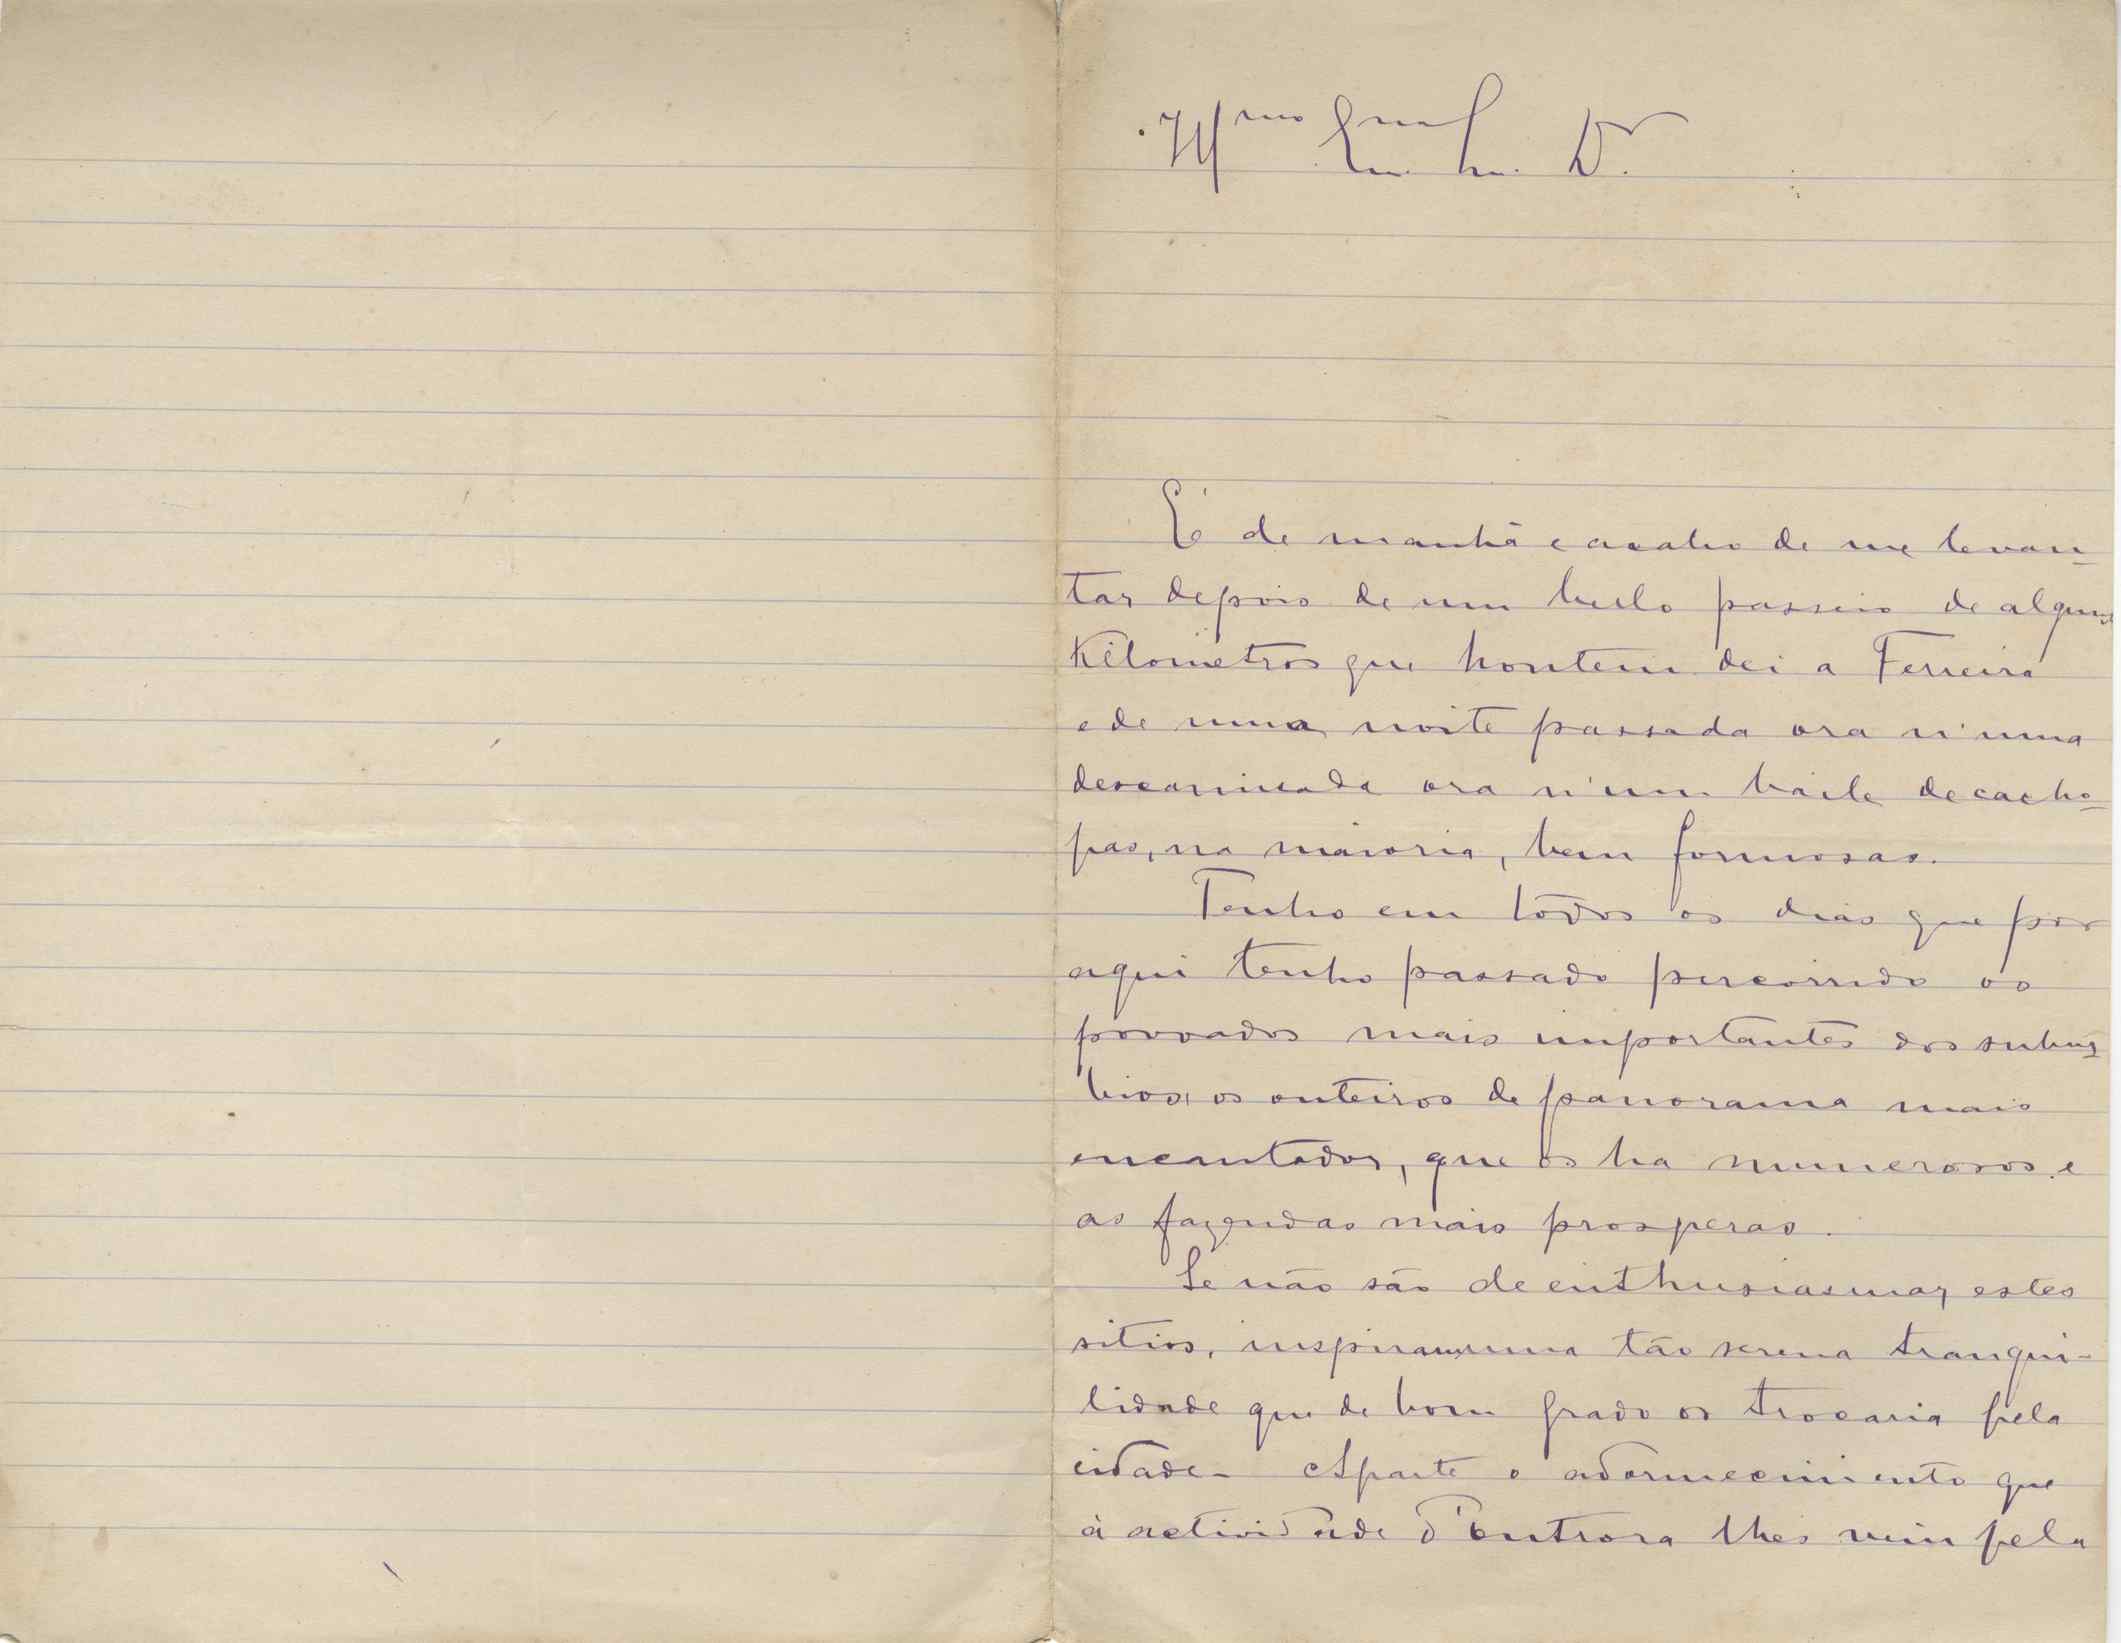 Illmo Exmo Snr. Dr.
É de manhã e acabo de me levan-
tar depois de um bello passeio de alguns
Kilometros que hontem dei a Ferreira
e de uma noite passada ora n'uma
descamisada ora n'um baile de cacho-
pas, na maioria, bem formosas.
Tenho em todos os dias que por
aqui tenho passado percorrido os
povoados mais importantes dos subur-
bios, os outeiros de panorama mais
encantador, que os ha numerosos e
as fazendas mais prosperas.
Se não são de enthusiasmar, estes
sitios, inspiram uma tão serena tranqui-
lidade que de bom grado os trocaria pela
cidade. Aparte o adormecimento que
á actividade d'outrora lhes veiu pela